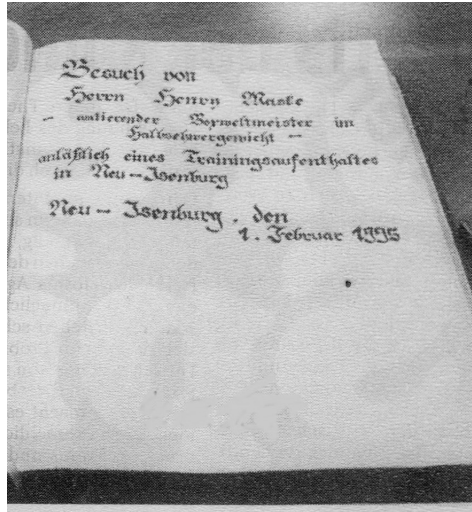 Besuch von
Herrn Henry Maske
- amtierender Boxweltmeister im
Halbschwergewicht -
anläßlich eines Trainingsaufenthaltes
in Neu-Isenburg
Neu-Isenburg, den
1. Februar 1995